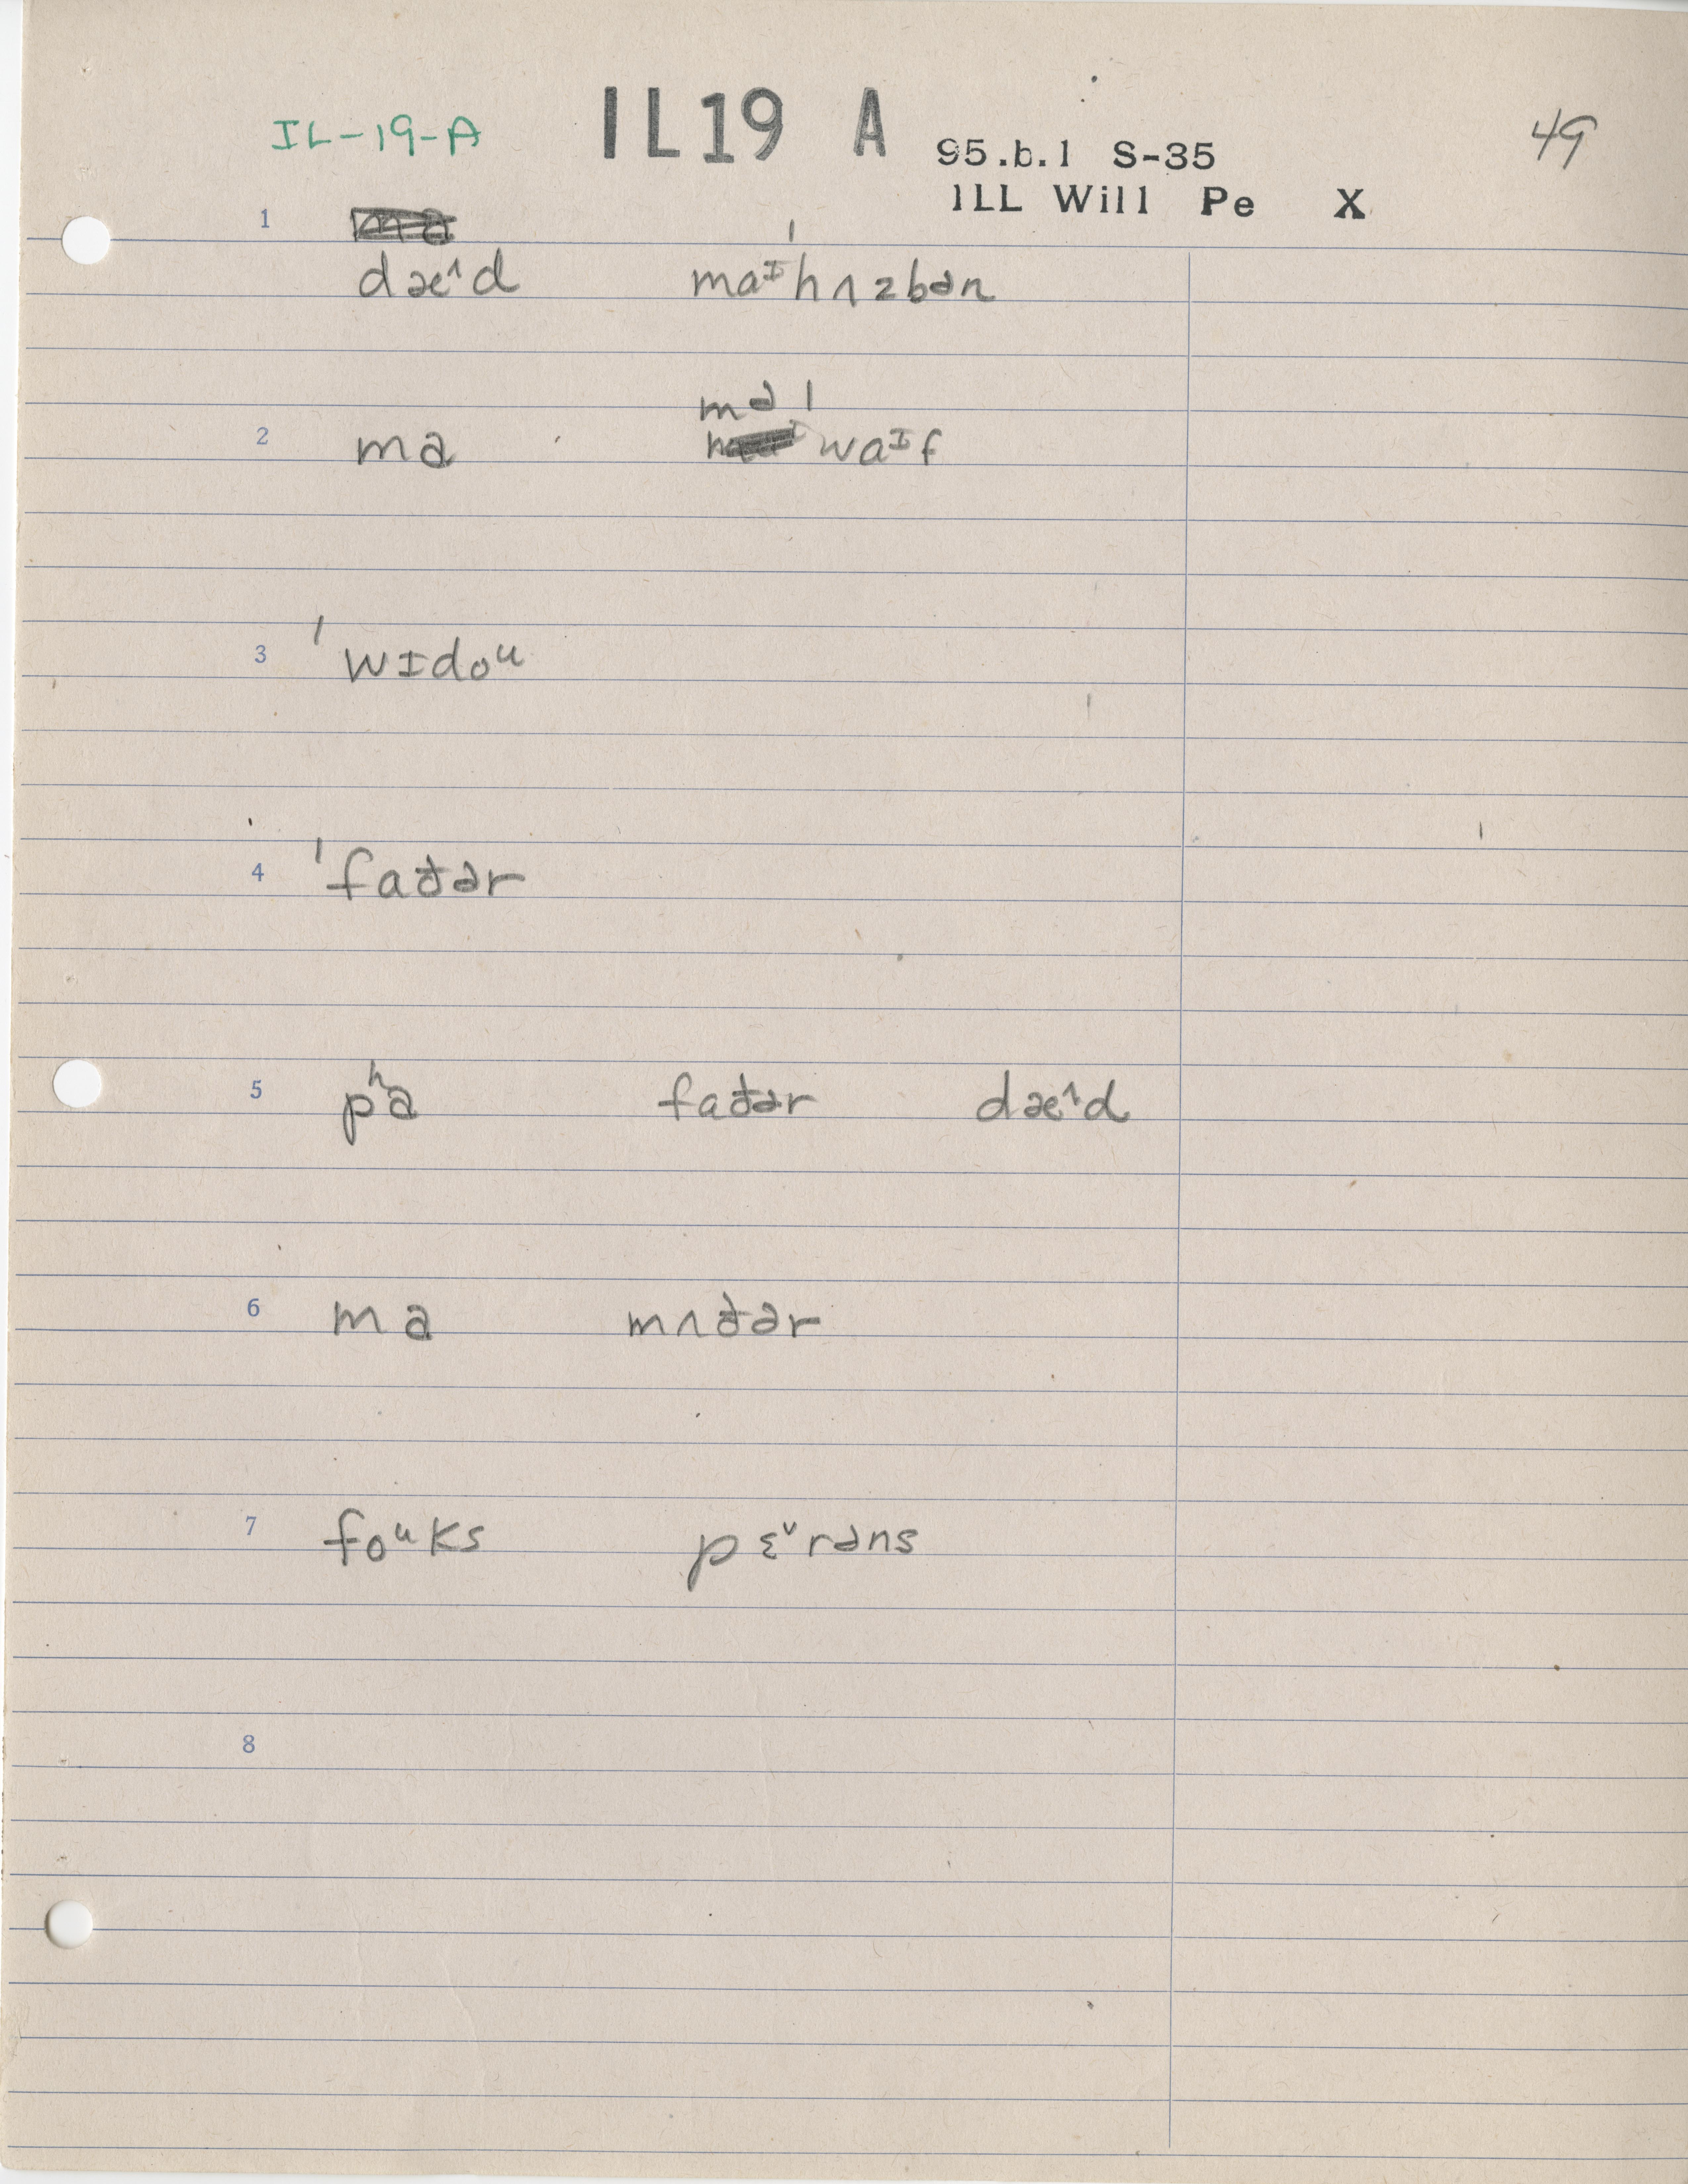 IL-19-A IL19 A 95.b.1 S-35 49
ILL Will Pe X
1
dæ˄d maᴵˈhʌzbən
mə ˈ
2 ma waᴵf
3 ˈwɪdoᵘ
4 ˈfaðər
5 pʰa faðər dæ˄d
6 ma mʌðər
7 foᵘks pɛ˅rəns
8